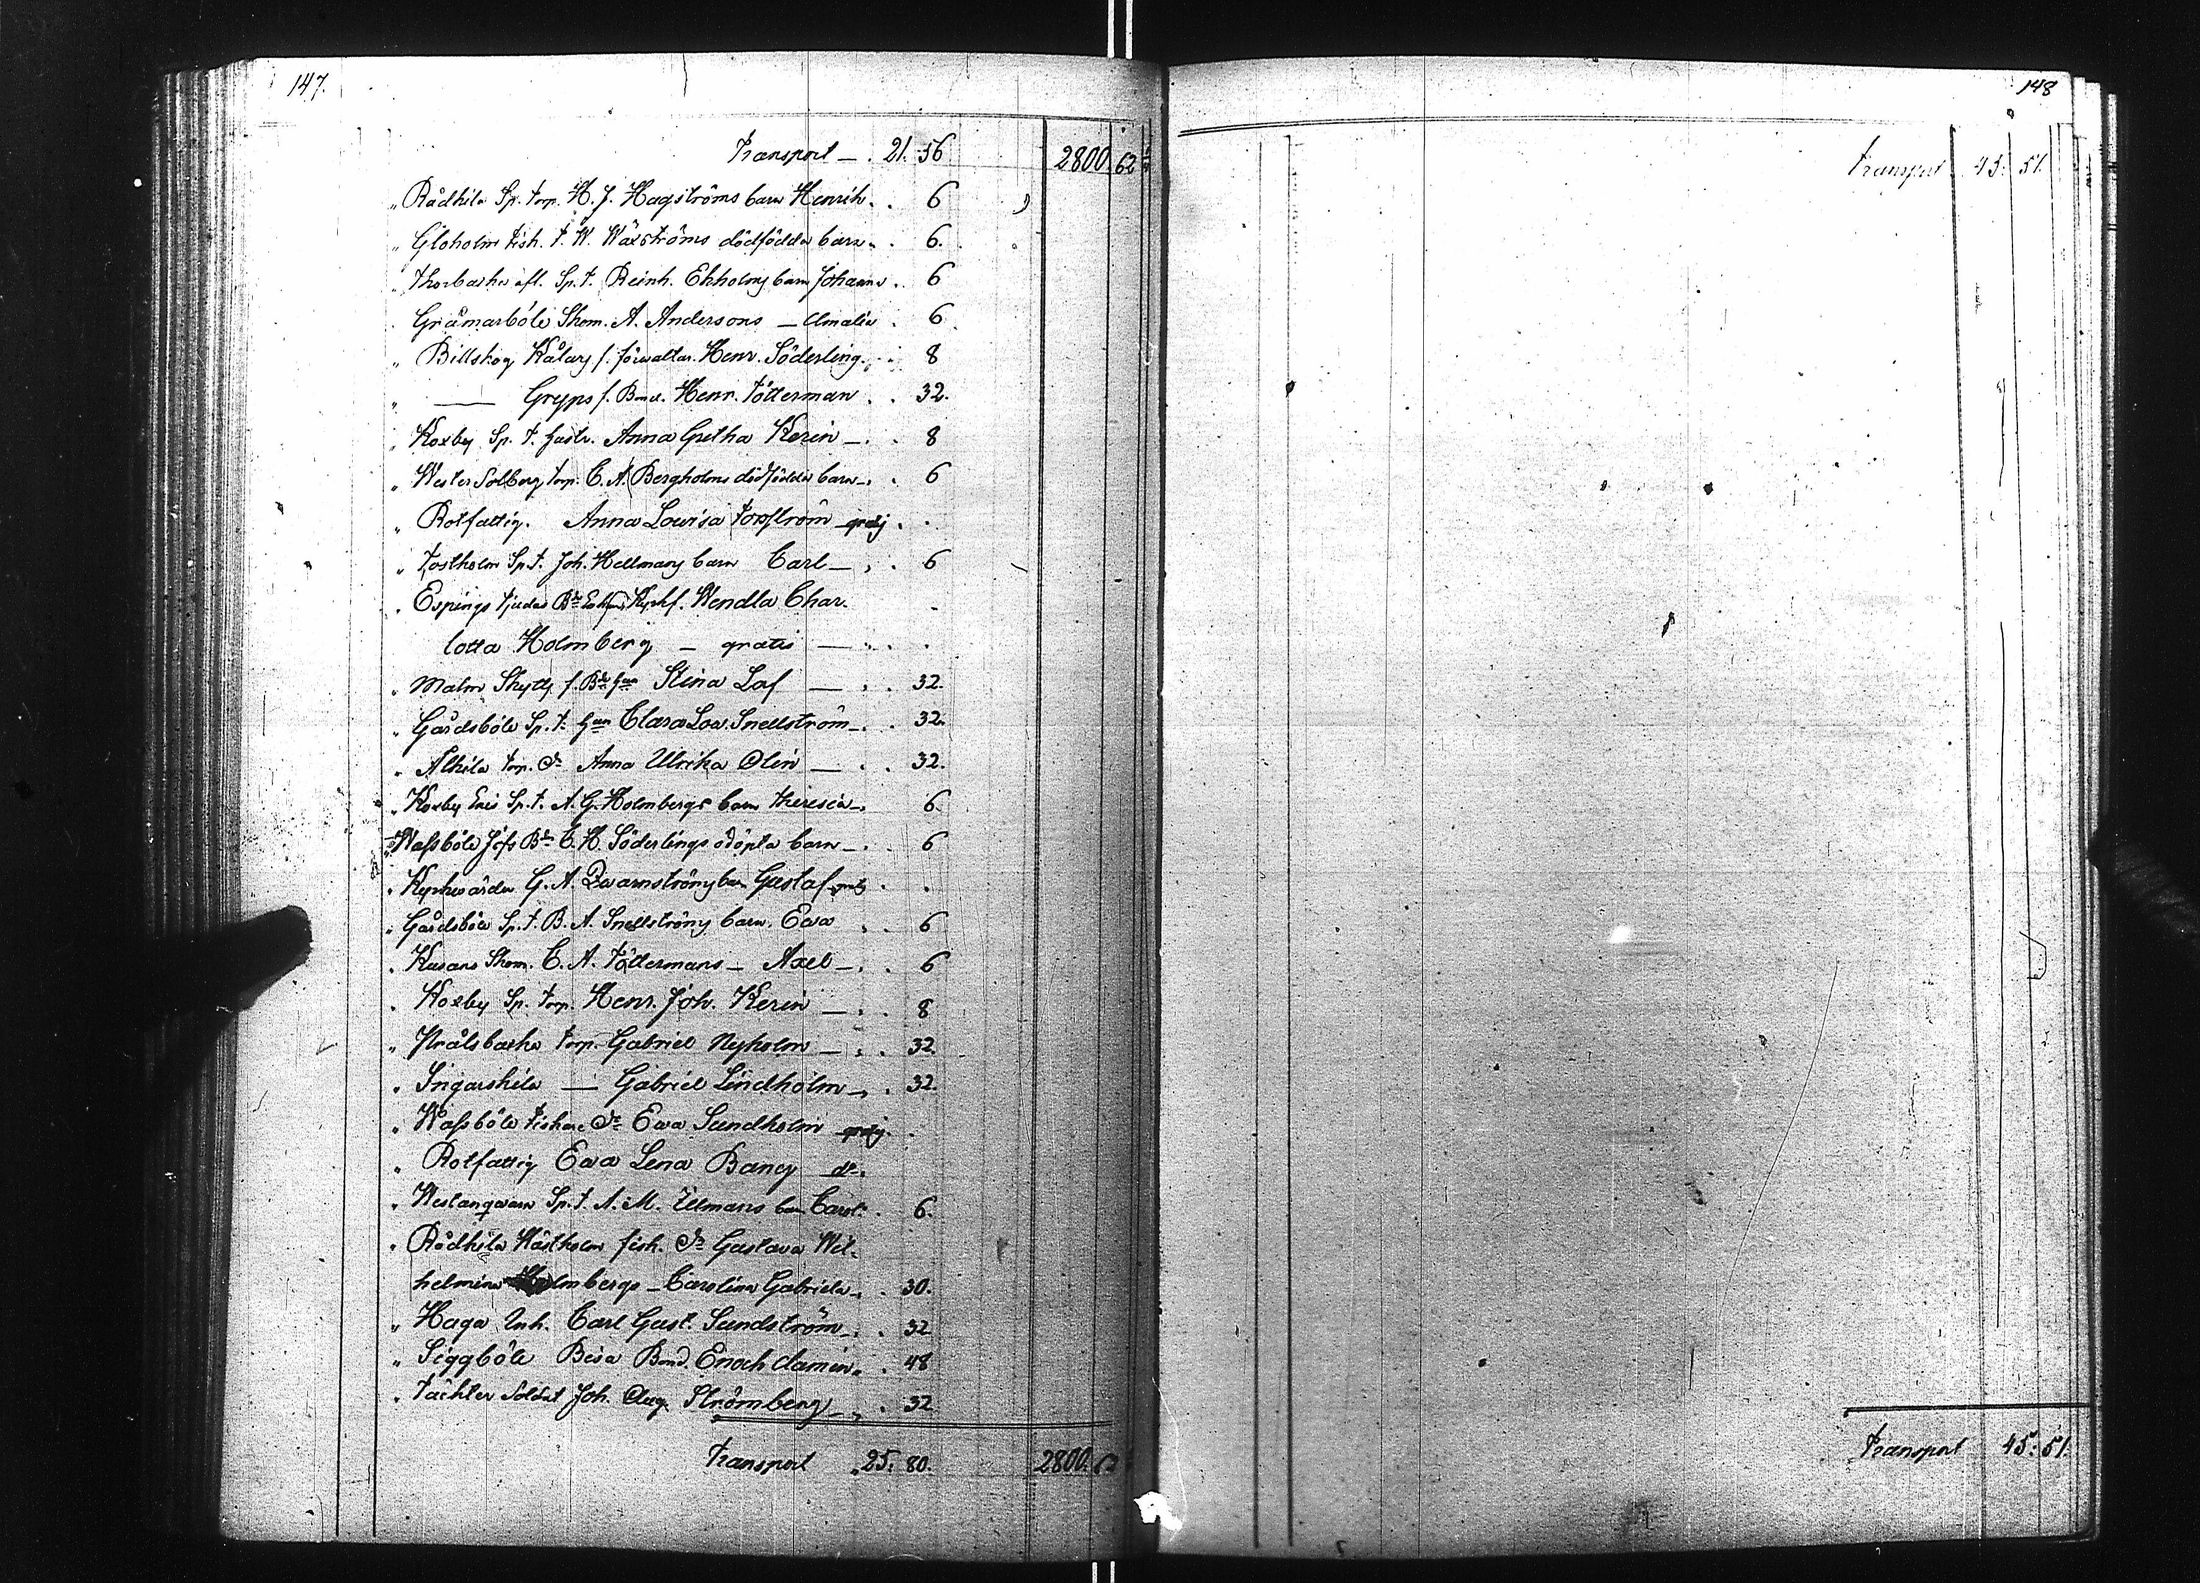 147.
Transport — . 21. 56 2800. 62
" Rådkila Sp. torp. H. J. Hagströms barn Henrik . . 6
" Gloholm fisk. t. W. Wäxströms dödfödda barn . . 6.
" Thorbacka afl. Sp. t. Reinh. Ekholms barn Johanna . 6
Gråmarböle Skom. A. Andersons — Amalia . 6
" Billskog Kålary f. förvaltar. Henr. Söderling . . 8
" —— Gryps f. Bond. Henr. Tötterman . . 32.
" Koxby Sp. t. Gastr. Anna Gretha Kerin — . . 8
" Wester Solberg torp. C. A. Bergholms dödfödda barn — . . 6
" Rotfattig. Anna Lowisa Forsström gratis . .
" Tostholm Sp. t. Joh. Hellmans barn Carl — , . 6
. Espings Tjuda Wendla Char-
lotta Holmberg — gratis — . . .
" Malm Skytts f. Stina Laf — . . 32.
" Gårdsböle Sp. t. Clara Lov. Snellström — . . 32.
" Alkila torp. Dr Anna Ulrika Olin — . . 32.
" Koxby Eris Sp. t. A. G. Holmbergs barn Theresia — . 6
" Wassböle Jofs Bde C. H. Söderlings odöpta barn — . . 6
. Kyrkwärden G. A. Qvarnströms barn Gustaf gratis . .
" Gårdsböle Sp. t. B. A. Snellströms barn. Eva . . 6
. Kusans Skom. C. A. Töttermans — Axel — . . 6
. Koxby Sp. torp. Henr. Joh. Kerin — . . 8
" Kålsbacka torp. Gabriel Nyholm — . . 32.
" Ingarskila — Gabriel Lindholm — . . 32.
" Wassböle fiskare Dr Eva Sundholm gratis .
" Rotfattig Eva Lena Bancy do.
" Westanqvarn Sp. t. A. M. Ulmans barn Carol. . 6.
" Rådkila Wästholm fisk. Dr Gustava Wil-
helmina Holmbergs — Carolina Gabriela . . 30.
" Haga Inh. Carl Gust. Sundström . . . 32
" Siggböle Besa Bond. Enoch Damin . . 48
. Täckter Soldat Joh. Aug. Strömberg — , . 32
Transport . 25. 80. 2800.
148
Transport 45: 51.
Transport 45: 51.